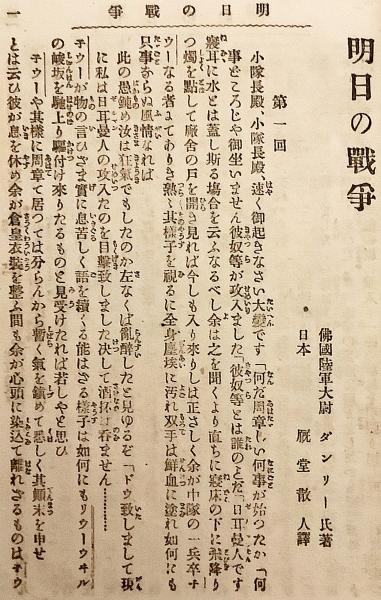 明日の戰爭
一
明日の戰爭
佛國陸軍大尉 ダンリー氏著
日本 厩堂散人譯
第一回
小隊長殿、小隊長殿、速く御起きなさい大變です「何だ周章しい何事が始つたか「何
事どころじや御坐いません彼奴等が攻入ました「彼奴等とは誰のとだ「日耳曼人です
寢耳に水とは蓋し斯る塲合を云ふなるべし余は之を聞くより直ちに寢床の下に飛降り
つ燭を點して廠舍の戸を開き見れば今しも入り來りしは正さしく余が中隊の一兵卒チ
ウーなる者まてありき熟々其樣子を視るに全身塵埃に汚れ双手は鮮血に塗れ如何にも
只事ならぬ風情なれば
此の愚鈍め汝は狂氣でもしたのか左なくば亂醉したと見ゆるぞ「ドウ致しまして現
に私は日耳曼人の攻入たのを目擊致しました決して酒抔は呑ません…………
チウーが物の言ひざま實に息苦しく語を續くる能はざる樣子は如何にもリウーウヰル
の峻坂を馳上り驅付け來りたるものと見受けたれば若しやと思ひ
チウーや其樣に周章て居つては分らんから暫く氣を鎭めて悉しく其顚末を申せ
とは云ひ彼が息を休め余が倉皇衣裝を整ふ間も余が心頭に染込て離れざるものはチウ